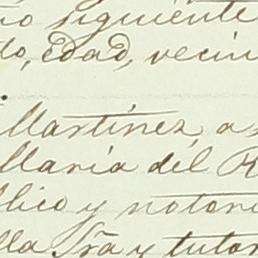 no siguiente
do, edad, vecin
Martinez, a
Maria del R
blico y notori
lla Sra y tutor